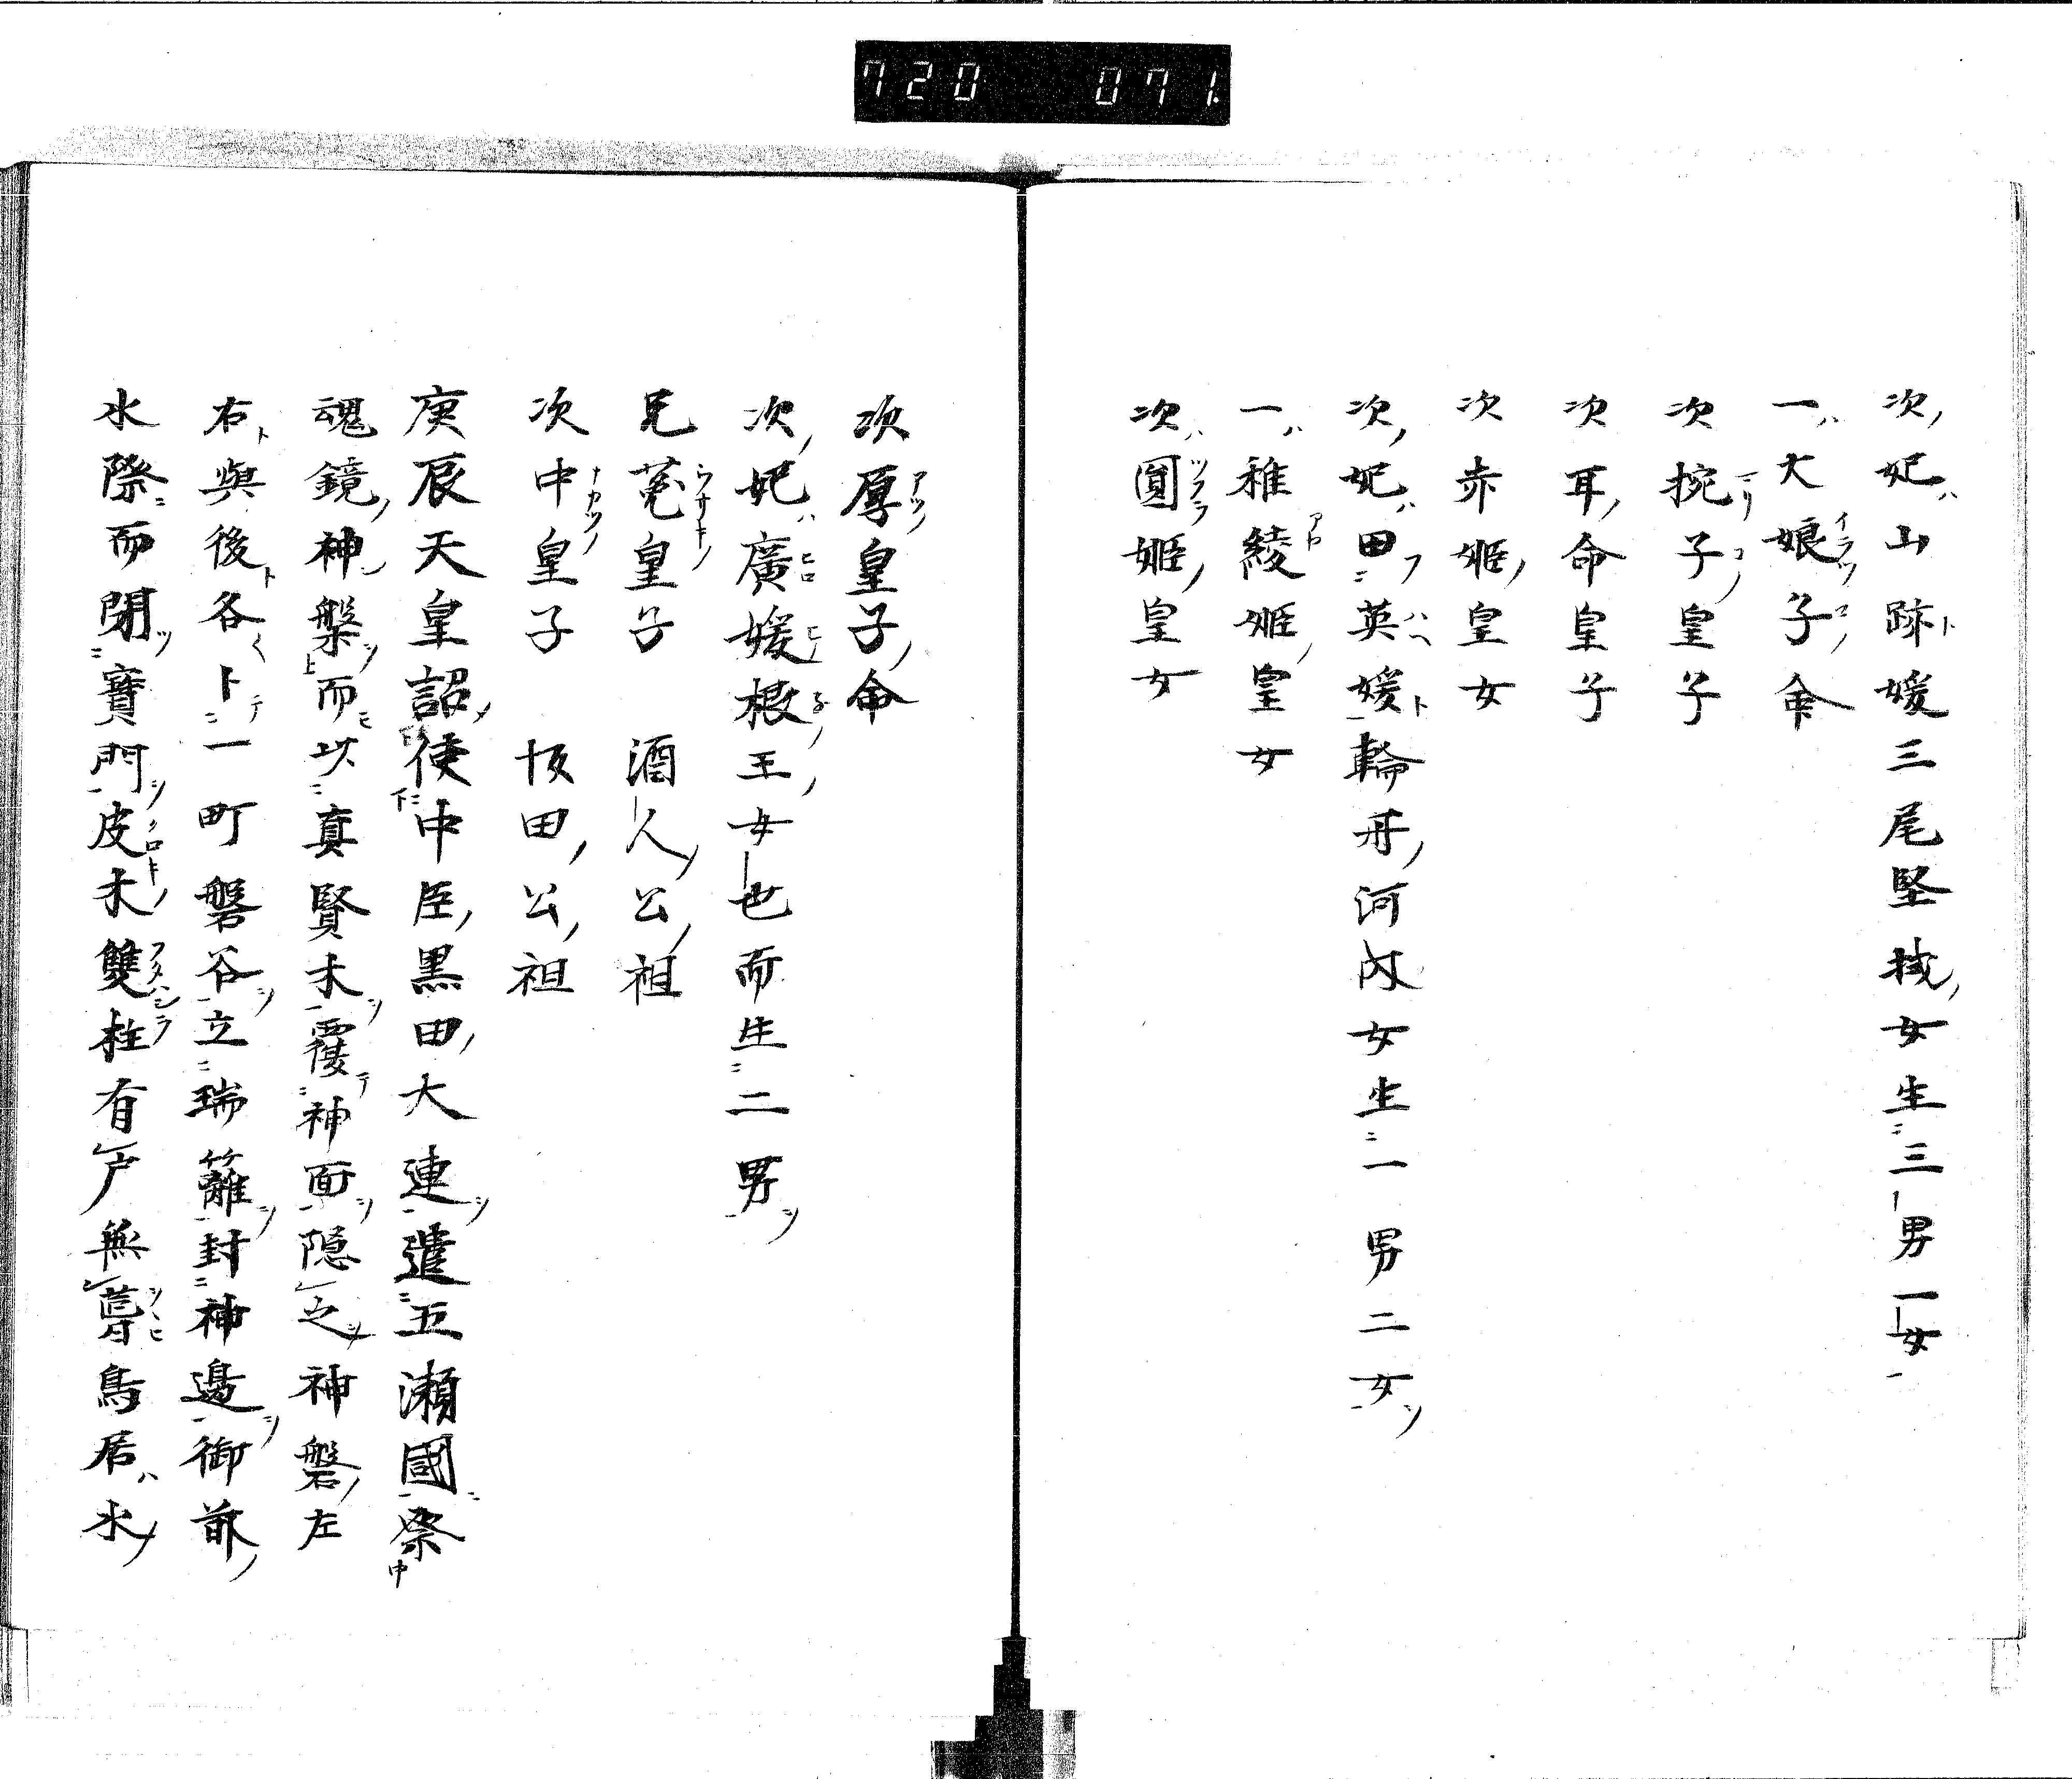 720 071
次妃山跡媛三尾堅㭜女生三男一女
一大娘子命
次椀子皇子
次耳命皇子
次赤姫皇女
次妃田英媛輪冄河內女生一男二女
一稚綾姫皇女
次圓姫皇女
次厚皇子命
次妃廣媛根王女也而生二男
兄菟皇子 酒人公祖
次中皇子 坂田公祖
庚辰天皇詔使中臣黒田大連遣五瀬國祭
魂鏡神槃而以真賢木覆神面隠之神磐左
右與後各卜一町磐谷立瑞籬封神邊御前
水際而閉寶門皮木雙柱有戸無 鳥居水